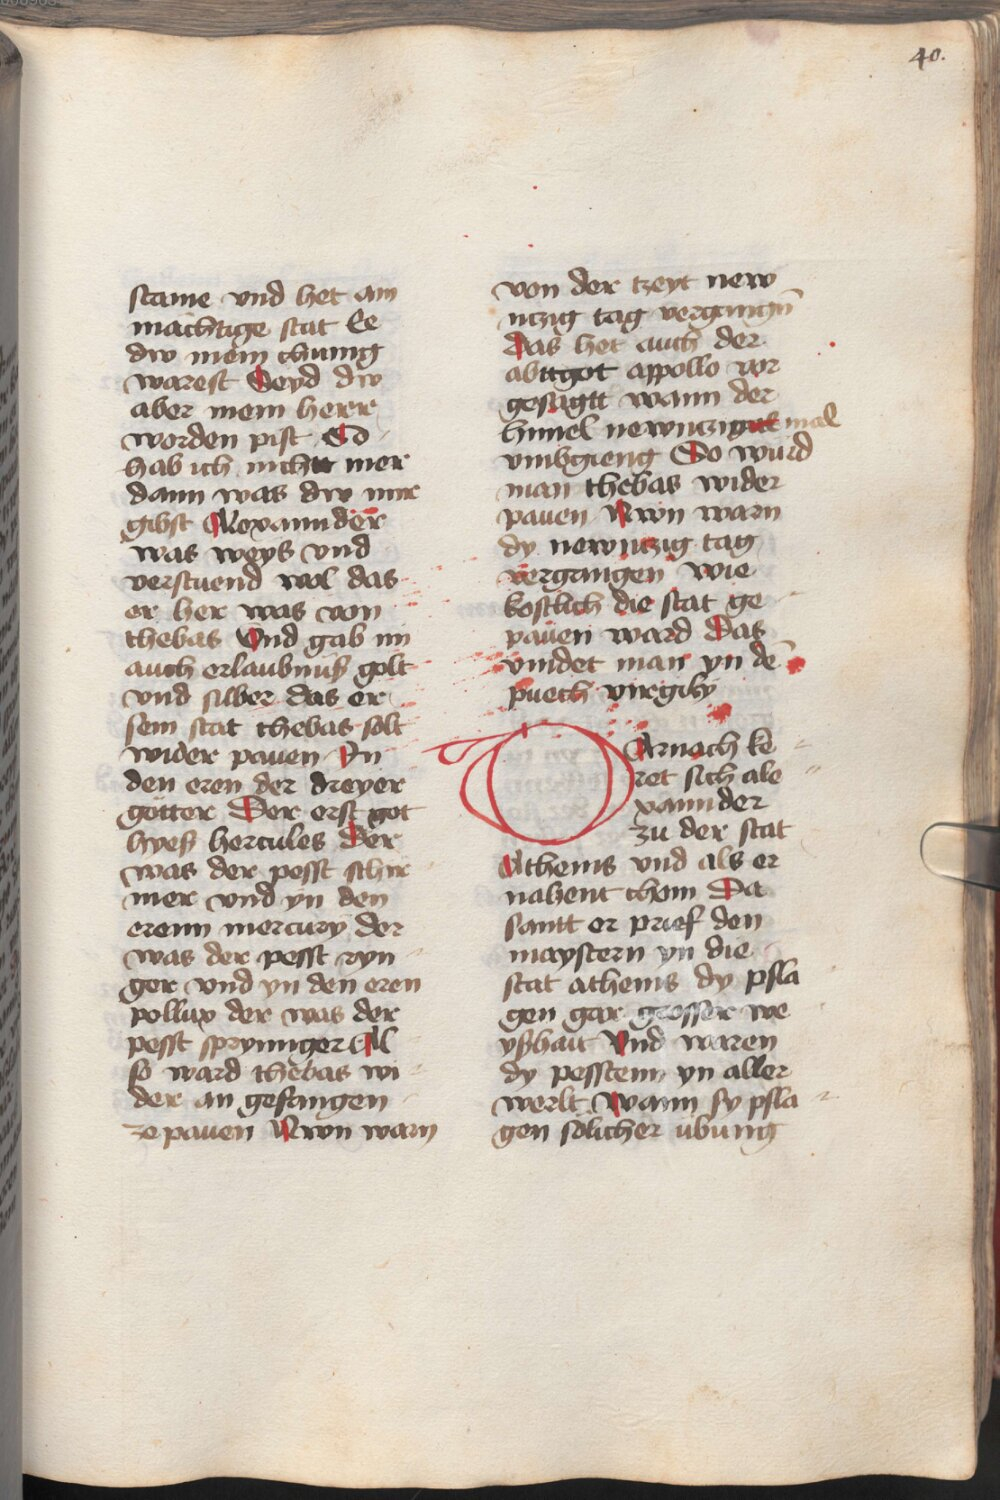 40.
stame vnd het am
mächtige stat Ee
diw mein chunig
warest Seyd diw
aber mein herr
worden pist So
hab ich nichtt mer
dann was diw mir
gibst Alexannder
was weys vnd
verstuend wol das
er her was von
thebas Vnd gab im
auch erlaubnuß golt
vnd silber das er
sein stat thebas solt
wider pauen In
den eren der dreyer
götter Der erst got
hyeß hercules Der
was der pesst schir
mer vnd yn den
erenn mercury der
was der pesst ryn
ger vnd yn den eren
pollux der was der
pesst sprynnger Al
so ward thebas wi
der an gefangen
ze pauen Nwn warn
von der tzeyt new
nczig tag vergangñ
Das het auch der
abttgot appollo vor
gesagtt wann der
himel newnczig mal
vmbgieng So wurd
man thebas wider
pauen Nwn warn
dy newnczig tag
vergangen wie
kostlich die stat ge
pauen ward Das
vindet man yn dē
puech virgily
Darnach ke
ret sich ale
xannder
zu der stat
Athenis vnd als er
nahent chom Da
santt er prief den
maystern yn die
stat athenis dy pfla
gen gar grosser we
yßhait Vnd waren
dy pessten yn aller
werlt Wann sy pfla
gen sölicher übung